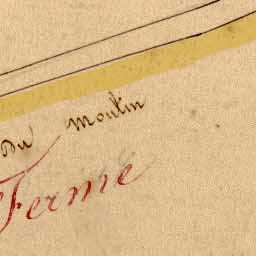 du Moulin
Ferme